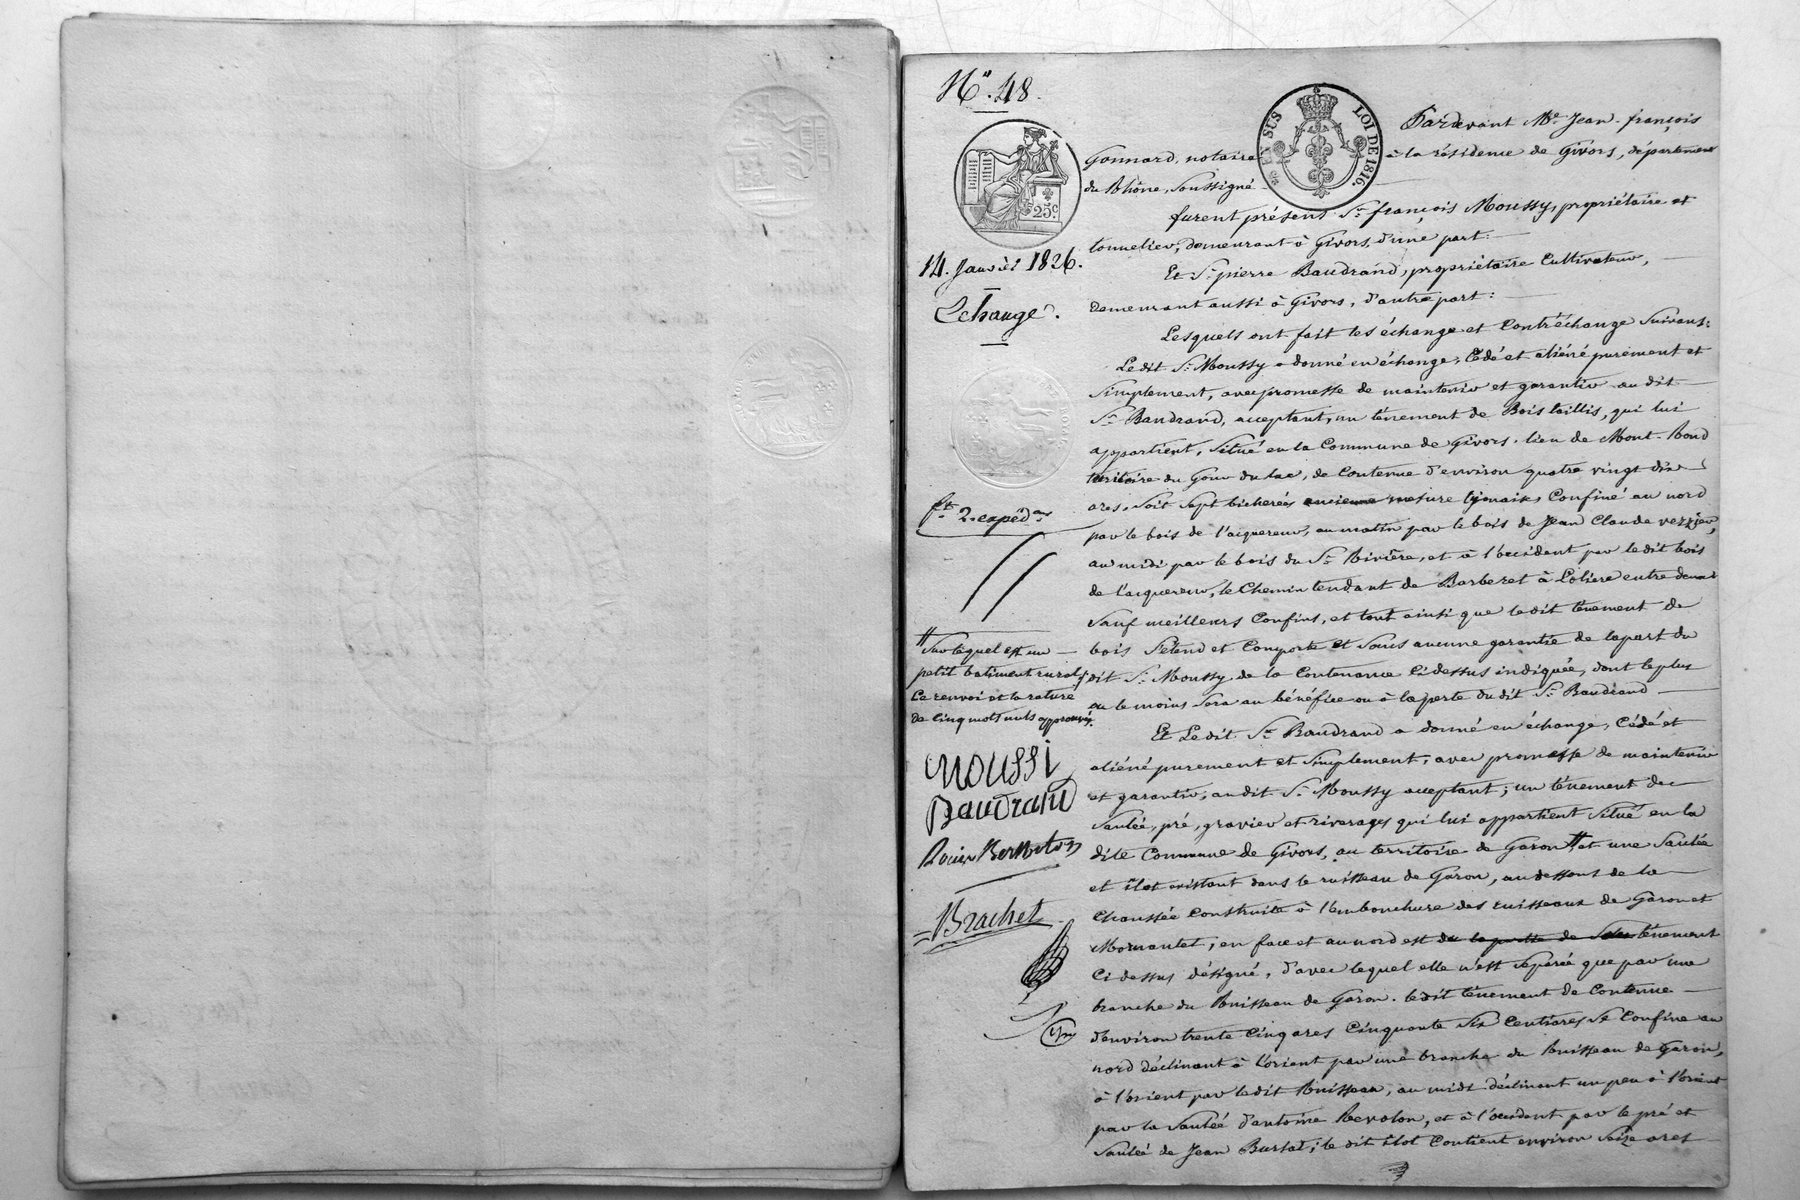 N° 48.
EN SUS LOI DE 1816.
25c
14. Janvier 1826.
Echange.
ft. 2. expéd.ons
Pardevant Me Jean-françois
Gonnard, notaire à la résidence de Givors, département
du Rhône, soussigné
furent présent Sr. françois Moussy, propriétaire et
tonnelier, demeurant à Givors, d'une part.
Et Sr. pierre Baudrand, propriétaire Cultivateur,
demeurant aussi à Givors, d'autre part:
Lesquels ont fait les échange et Contréchange Suivants:
Le dit Sr. Moussy a donné en échange, Cédé et aliéné purement et
Simplement, avec promesse de maintenir et garantir au dit
Sr. Baudrand, acceptant, un tènement de Bois taillis, qui lui
appartient, Situé en la Commune de Givors, lieu de Mont-Rond
territoire du Gour du lac, de Contenue d'environ quatre vingt dix
ares, Soit Sept bicherées ancienne mesure lyonaise, Confiné au nord
par le bois de l'acquereur, au matin par le bois de Jean Claude verzier,
au midi par le bois du Sr. Rivière, et à l'occident par le dit bois
de l'acquereur, le Chemin tendant de Barberet à Loliere entre deux
Sauf meilleurs Confins, et tout ainsi que le dit tènement de
bois S'étend et Comporte et Sans aucune garantie de la part du
dit Sr. Moussy, de la Contenance Ci dessus indiquée, dont le plus
ou le moins Sera au bénéfice ou à la perte du dit Sr. Baudrand
Et Le dit Sr. Baudrand a donné en échange, Cédé et
aliéné purement et Simplement, avec promesse de maintenir
et garantir, au dit Sr. Moussy acceptant; un tènement de
Saulée, pré, gravier et riverages qui lui appartient Situé en la
dite Commune de Givors, au territoire de Garon # et une Saulée
et îlot existant dans le ruisseau de Garon, au dessous de la
Chaussée Construite à l'embouchure des ruisseaux de Garon et
Mornantet, en face et au nord est du tènement
Ci dessus désigné, d'avec lequel elle n'est Séparée que par une
branche du Ruisseau de Garon. le dit tènement de Contenue
d'environ trente Cinq ares Cinquante Six Centiares Se Confine au
nord déclinant à l'orient par une branche du Ruisseau de Garon,
à l'orient par le dit Ruisseau, au midi déclinant un peu à l'orient
par la Saulée d'antoine Revolon, et à l'occident par le pré et
Saulée de Jean Burlat; le dit îlot Contient environ Seize ares
# Sur lequel est un
petit batiment rural;
Le renvoi et la rature
de Cinq mots nuls approuvés.
MOUSSI
Baudrand
Brachet